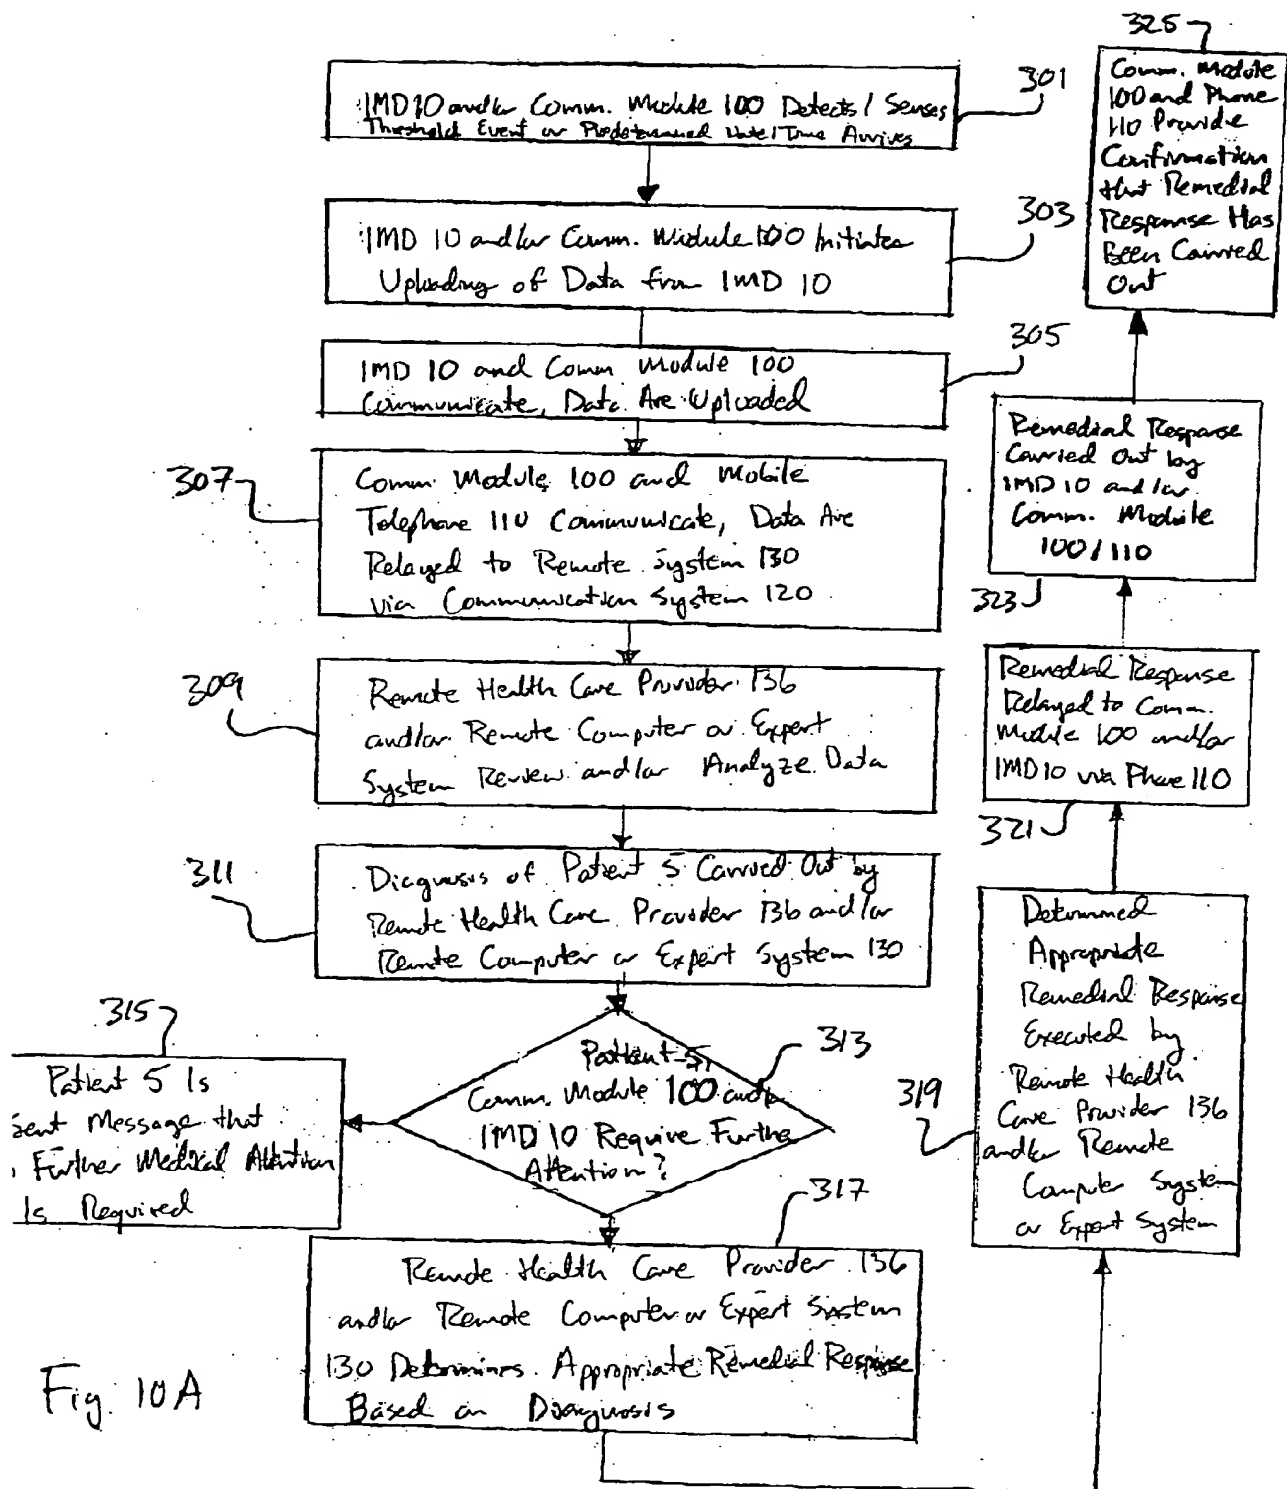 301
IMD 10 and/or Comm. Module 100 Detects / Senses
Threshold Event or Predetermined Date/Time Arrives
303
IMD 10 and/or Comm. Module 100 Initiates
Uploading of Data from IMD 10
305
IMD 10 and Comm Module 100
Communicate, Data Are Uploaded
307
Comm. Module 100 and Mobile
Telephone 110 Communicate, Data Are
Relayed to Remote System 130
via Communication System 120
309
Remote Health Care Provider 136
and/or Remote Computer or Expert
System Review and/or Analyze Data
311
Diagnosis of Patient 5 Carried Out by
Remote Health Care Provider 136 and/or
Remote Computer or Expert System 130
313
Patient 5,
Comm. Module 100 and/or
IMD 10 Require Further
Attention?
315
Patient 5 Is
Sent Message that
Further Medical Attention
Is Required
317
Remote Health Care Provider 136
and/or Remote Computer or Expert System
130 Determines Appropriate Remedial Response
Based on Diagnosis
319
Determined
Appropriate
Remedial Response
Executed by
Remote Health
Care Provider 136
and/or Remote
Computer System
or Expert System
321
Remedial Response
Relayed to Comm.
Module 100 and/or
IMD 10 via Phone 110
323
Remedial Response
Carried Out by
IMD 10 and/or
Comm. Module
100/110
325
Comm. Module
100 and Phone
110 Provide
Confirmation
that Remedial
Response Has
Been Carried
Out
Fig. 10A